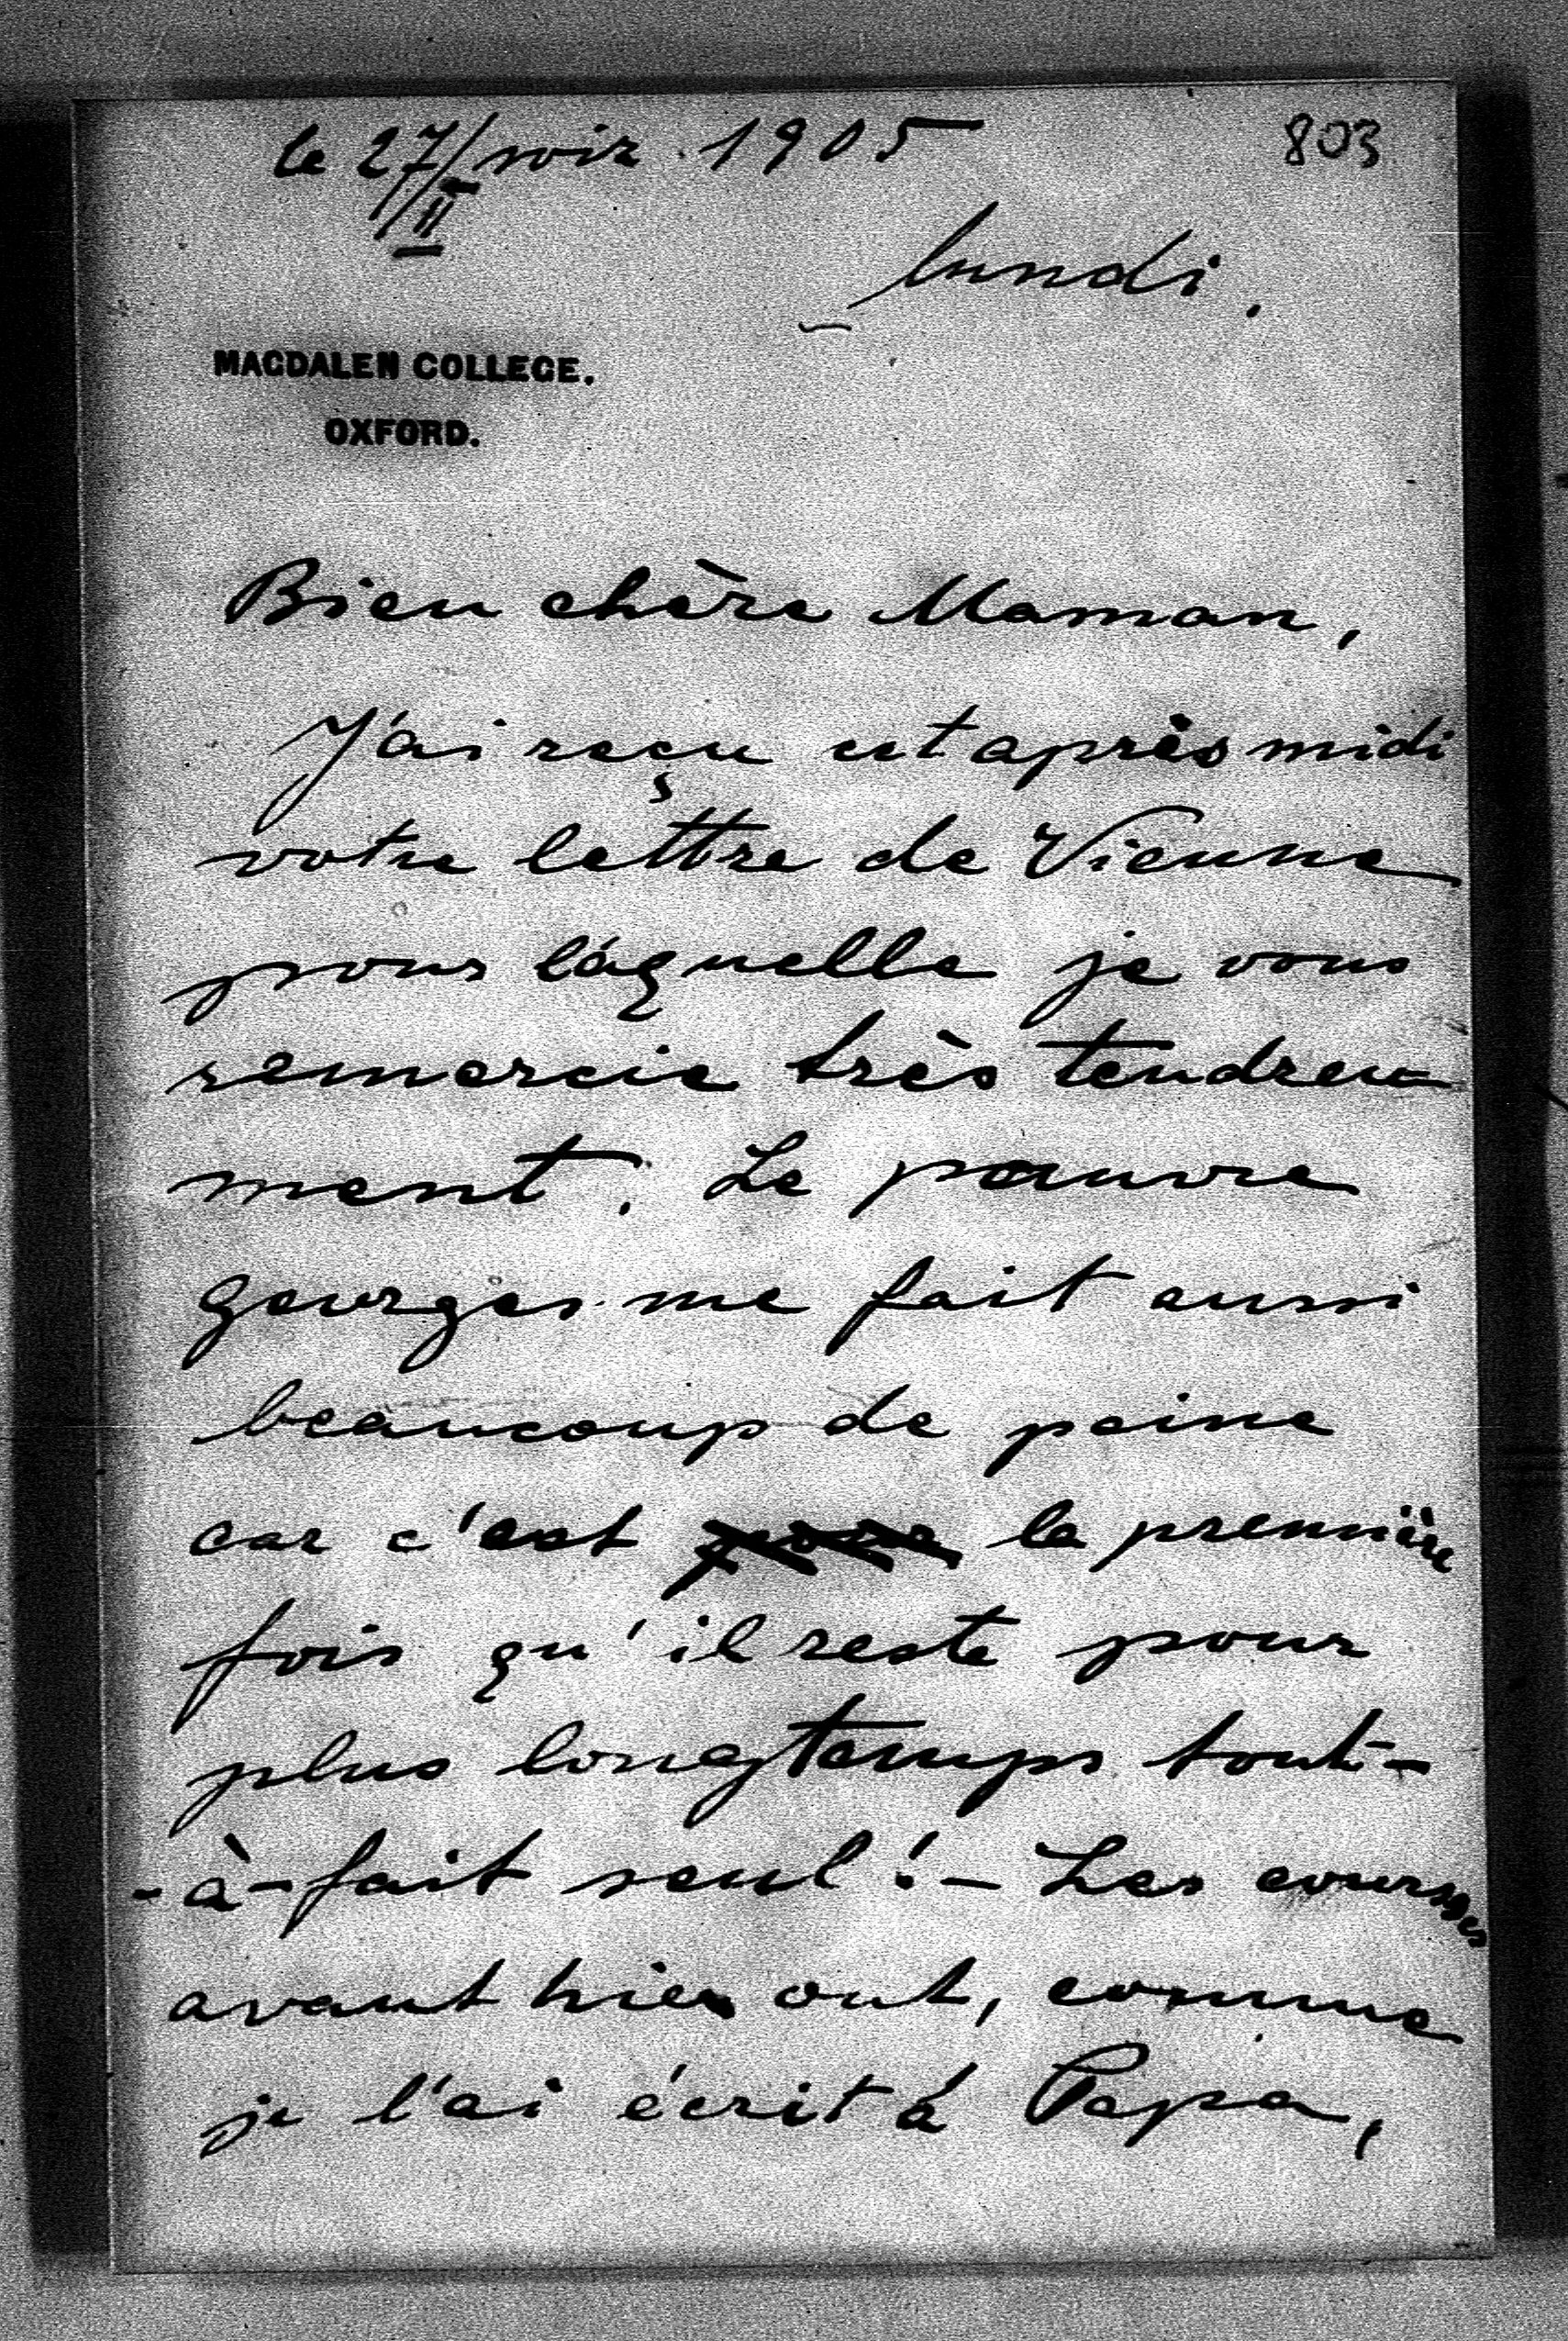 le 27/II soir 1905
803
lundi.
MAGDALEN COLLEGE.
OXFORD.
Bien chère Maman,
J'ai reçu cet après midi
votre lettre de Vienne
pour láquelle je vous
remercie très tendre-
ment. Le pauvre
Georges me fait aussi
beaucoup de peine
car c'est la première
fois qu'il reste pour
plus longtemps tout-
-à-fait seul! - Les courses
avant hier ont, comme
je l'ai écrit á Papa,